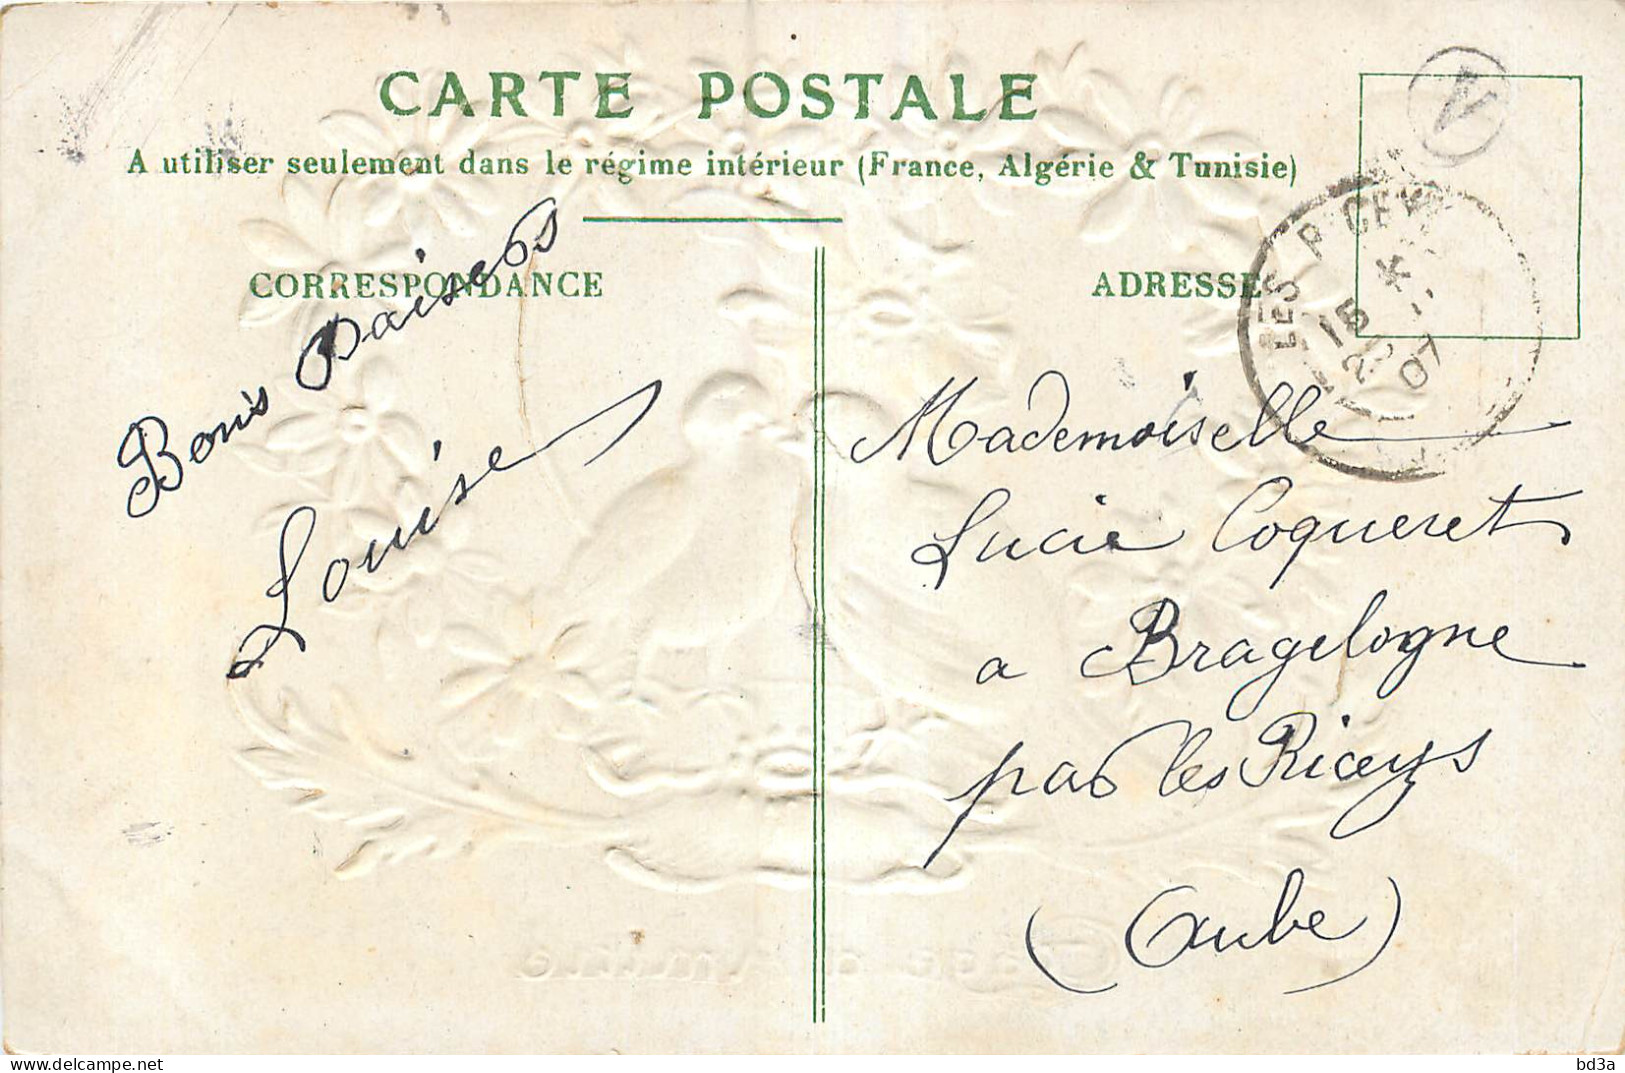 CARTE POSTALE
A utiliser seulement dans le régime intérieur (France, Algérie & Tunisie)
CORRESPONDANCE
ADRESSE
Bons Baisers
Louise
Mademoiselle
Lucie Coqueret
a Bragelogne
par les Riceys
(Aube)
LES RICEYS
15
07
Gage d'Amitié
delcampe.net
bd3a